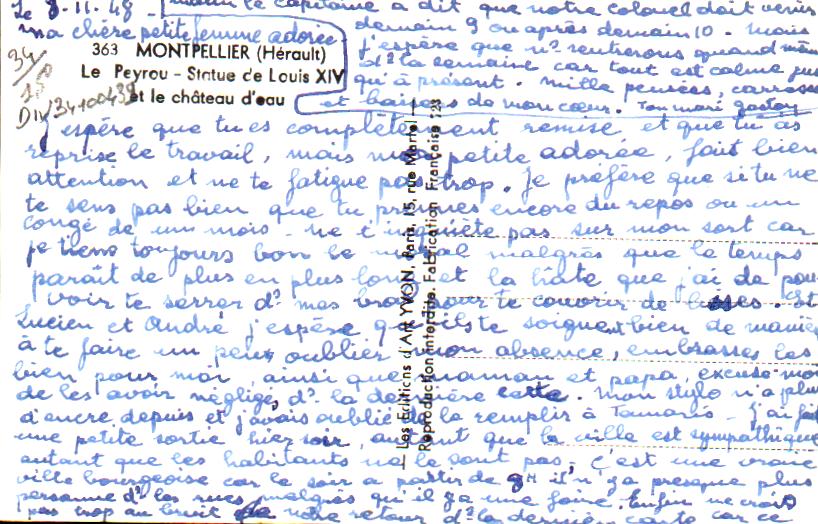 Le 8.11.48 -
ma chère petite femme adorée
363 MONTPELLIER (Hérault)
Le Peyrou - Statue de Louis XIV
et le château d'eau
34
DIV34100439
J'espère que tu es complètement remise et que tu as
reprise le travail, mais ma petite adorée, fait bien
attention et ne te fatigue pas trop. Je préfère que si tu ne
te sens pas bien que tu prennes encore du repos ou un
congé de un mois - ne t'inquiète pas sur mon sort car
je tiens toujours bon le moral malgrès que le temps
paraît de plus en plus long et la hâte que j'ai de pou-
voir te serrer ds mes bras pour te couvrir de Et
Lucien et André j'espère qu'ils te soignent bien de manière
à te faire un peu oublier mon absence, embrasses les
bien pour moi, ainsi que maman et papa, excuse-moi
de les avoir négligés ds la dernière lettre. Mon stylo n'a plus
d'encre depuis et j'avais oublié de le remplir à Tamaris - J'ai fait
une petite sortie hier soir, autant que la ville est sympathique
autant que les habitants ne le sont pas - C'est une vraie
ville bourgeoise car le soir a partir de 9H il n'y a presque plus
personne ds les rues, malgrès qu'il y a une foire. Enfin ne crois
pas trop au bruit de notre retour ds la dernière carte car ce
matin le capitaine a dit que notre colonel doit venir
demain 9 ou après demain 10 - mais
j'espère que ns rentrerons quand même
ds la semaine car tout est calme jus
qu'à présent. Mille pensées, caresses
et baisers de mon cœur. Ton mari gaston
Les Editions d'Art YVON, Paris, 15, rue Martel
Reproduction interdite. Fabrication Française